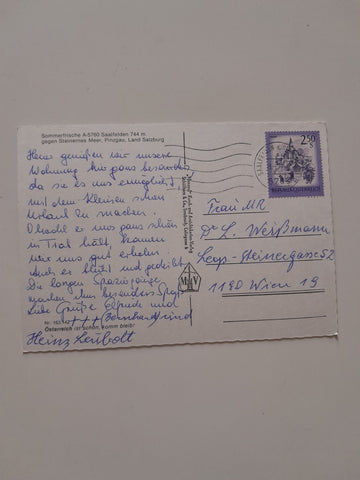 Sommerfrische A-5760 Saalfelden 744 m
gegen Steinernes Meer, Pinzgau, Land Salzburg
Heuer genießen wir unsere
Wohnung hier ganz besonders
da sie es uns ermöglicht
mit dem Kleinen schon
Urlaub zu machen.
Obwohl er uns ganz schön
in Trab hält, können
wir uns gut erholen
auch er blüht und gedeiht.
Die langen Spaziergänge
machen ihm besonders Spaß
Liebe Grüße Elfriede und
Bernhard
Heinz Leibolt
Nr. 163
Österreich ist schön, komm bleib!
2.50
S
REPUBLIK ÖSTERREICH
Frau MR
Dr L. Weißmann
Leop.-Steinergasse 52
1190 Wien 19